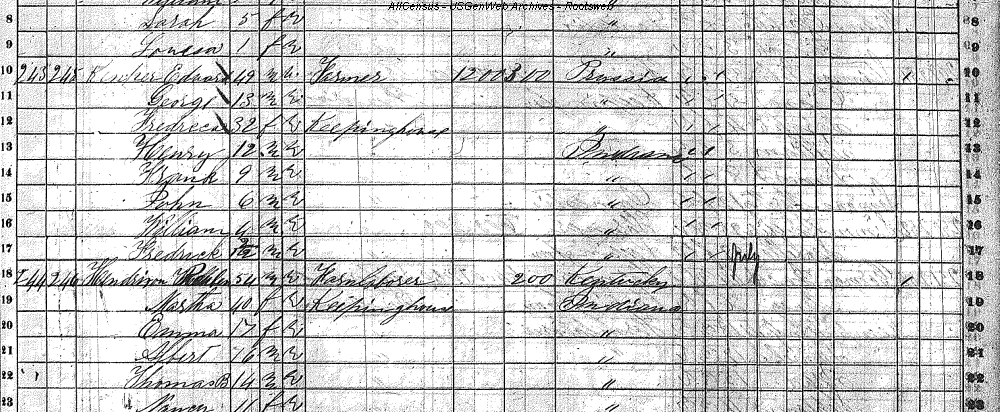 AllCensus - USGenWeb Archives - Rootsweb
8 Sarah 5 f W " 8
9 Louisa 1 f W " 9
10 243 245 Edward 49 m W Farmer 1200 300 Prussia 10
11 George 13 m W " 11
12 Fredreca 32 f W Keepinghouse " 12
13 Henry 12 m W Indiana 13
14 Frank 9 m W " 14
15 John 6 m W " 15
16 William 4 m W " 16
17 Fredrick m W " July 17
18 244 246 54 m W Farmlaborer 200 Kentucky 18
19 Martha 40 f W Keepinghouse Indiana 19
20 Emma 17 f W " 20
21 Albert 16 m W " 21
22 Thomas B 14 m W " 22
23 Nancy 11 f W " 23